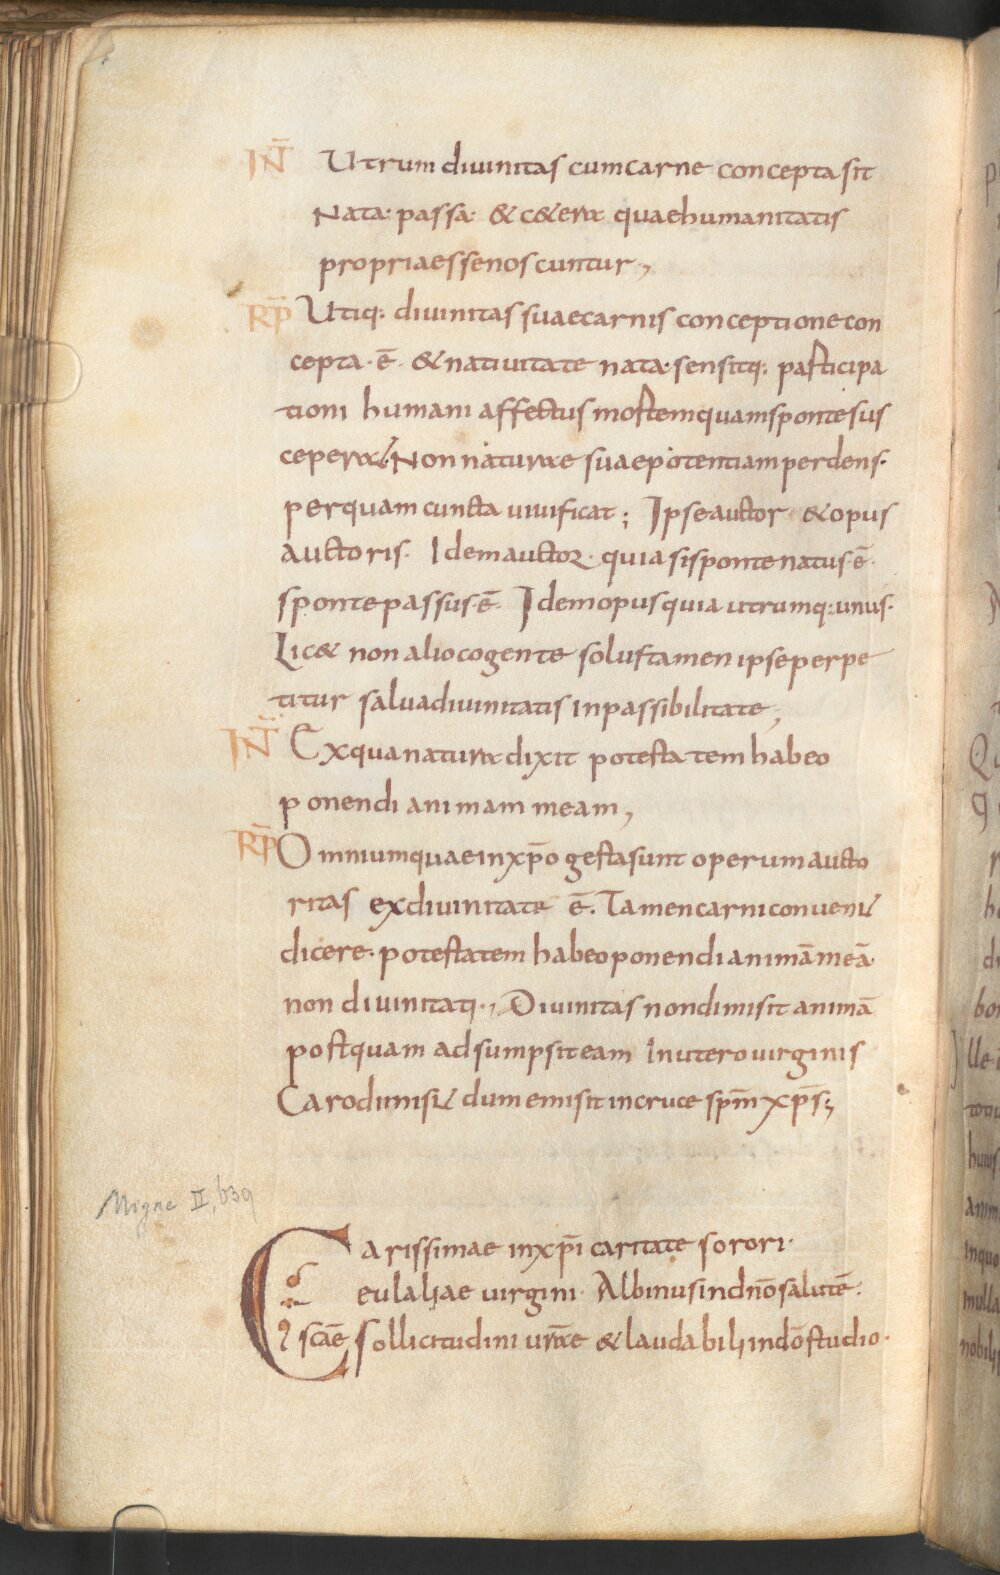 IN̄ Utrum diuinitas cumcarne concepta sit
Nata· passa· & c&era quaehumanitatis
propriaessenoscuntur,
RP̄ Utiq: diuinitas suaecarnis conceptionecon
cepta·ē· &natiuitate nata·sensitq: participa
tioni humani affectus mortemquamspontesus
ceperat. Non naturae suaepotentiamperdens·
perquam cuncta uiuificat; Ipseauctor &opus
auctoris· Idemauctor· quia sispontenatus·ē·
spontepassus·ē· Idemopusquia utrumq:unus·
Lic& non aliocogente soluftamen ipseperpe
titur saluadiuinitatis inpassibilitate,
IN̄ Exquanatura dixit potestatem habeo
ponendi animam meam,
RP̄ Omniumquaeinxp̄o gestasunt operumaucto
ritas exdiuinitate ē. Tamencarniconuenit
dicere· potestatem habeoponendianimāmeā·
non diuinitati·, Diuinitas nondimisit animā
postquam adsumpsiteam Inuterouirginis
Carodimisit dum emisitincruce sp̄m xp̄s;
Migne II, 639
Carissimae inxp̄i caritate sorori·
eulaliae uirgini· Albinusindn̄osalutē·
scāe sollicitudini ur̄ae &laudabiliindōstudio·